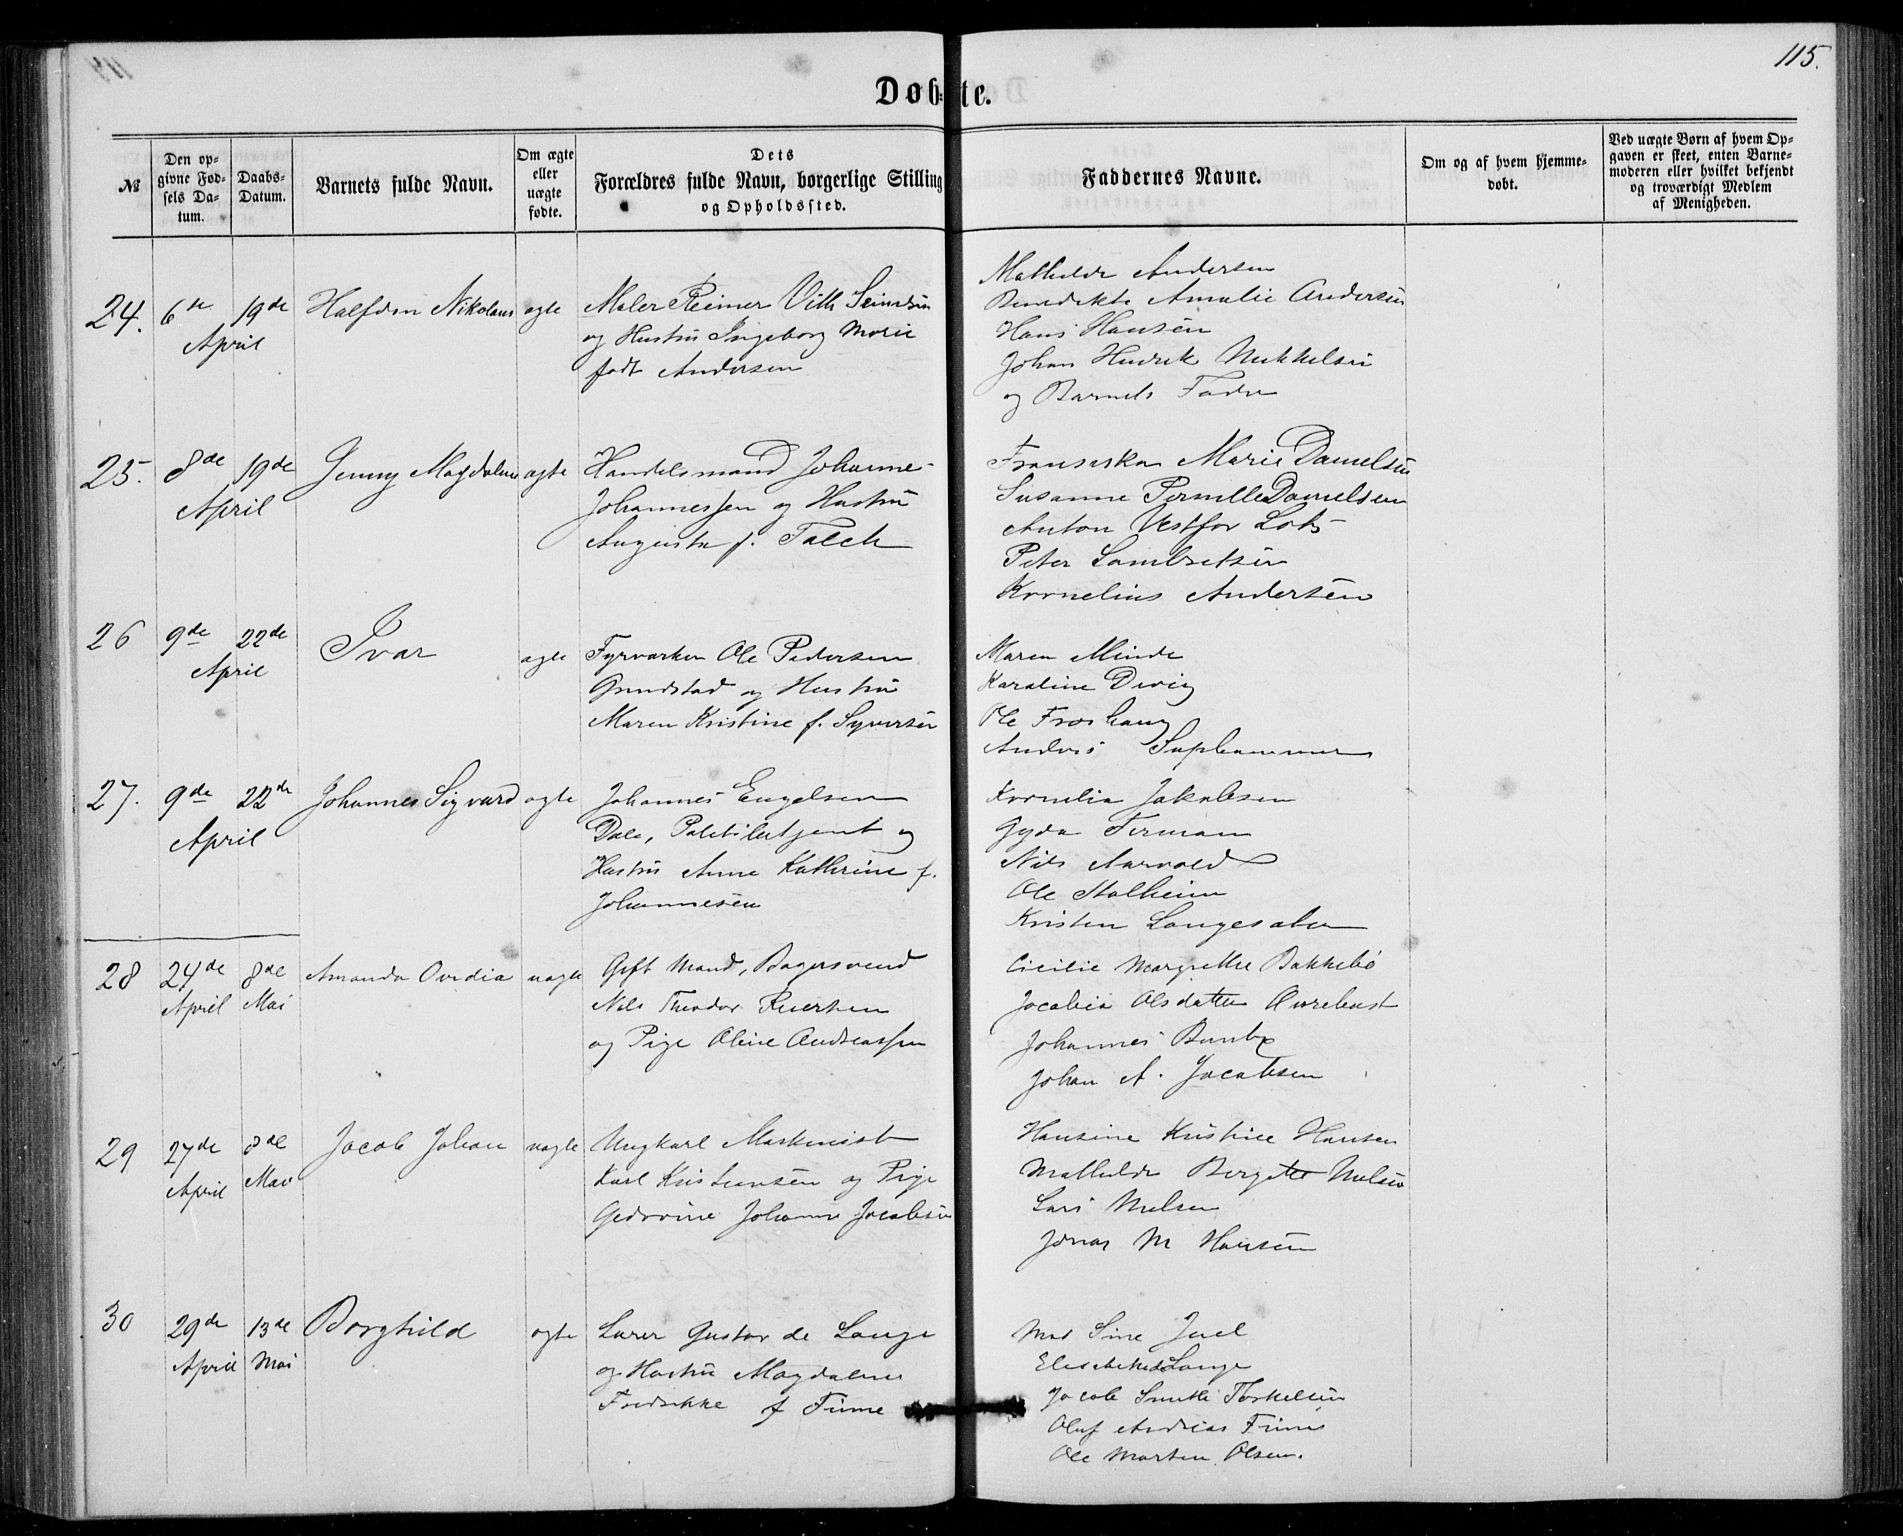 115.
Døb- te.
№
Den opgivne Fødsels Datum.
Daabs-Datum.
Barnets fulde Navn.
Om ægte eller uægte fødte.
Dets Forældres fulde Navn, borgerlige Stilling og Opholdssted.
Faddernes Navne.
Om og af hvem hjemmedøbt.
Ved uægte Børn af hvem Opgaven er skeet, enten Barnemoderen eller hvilket bekjendt og troværdigt Medlem af Menigheden.
24. 6te April 19de Halfdan Nikolaus ægte
Maler Reimer Vith
og Hustru Ingeborg Marie
født Andersen
Mathilde Andersen
Benedikte Amalie Andersen
Hans Hansen
Johan Hendrik Mikkelsen
og Barnets Fader
25. 8de April 19de Jenny Magdalene ægte
Handelsmand Johanne-
Johannessen og Hustru
Augusta f. Falch
Fransiska Marie Danielsen
Susanne Pernille Danielsen
Anton
Peter Lambretsen
Kornelius Andersen
26 9de April 22de Ivar ægte
Fyrvarker Ole Pedersen
Grundstad og Hustru
Maren Kristine f. Syversen
Maren Minde
Karoline
Ole Froshaug
Andreas
27. 9de April 22de Johannes Sigvard ægte
Johannes Engelsen
Dale, Politibetjent og
Hustru Anne Kathrine f.
Johannesen
Kornelia Jakobsen
Gyda
Nils Aarvold
Ole Stalheim
Kristen
28 24de April 8de Mai Amanda Ovidia uægte
Gift Mand, Bagersvend
Nils Theodor
og Pige Oline Andreassen
Cicilie Margrethe Bakkebø
Jacobia Olsdatter
Johannes
Johan A. Jacobsen
29 27de April 8de Mai Jacob Johan uægte
Ungkarl Maskinist
Karl Kristiansen og Pige
Johanne Jacobsen
Hansine Kristine Hansen
Mathilde Bergitte Nielsen
Lars Nielsen
Jonas M Hansen
30 29de April 13de Mai Borghild ægte
Lærer Gustav de Lange
og Hustru Magdalene
Fredrikke f Finne
Mad Sine Juel
Elisabeth de Lange
Jacob Smith Torkelsen
Oluf Andreas Finne
Ole Morten Olsen.